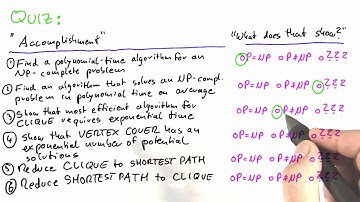 QUIZ:
"Accomplishment"
"What does that show?"
① Find a polynomial-time algorithm for an
NP-complete problem
○P=NP ○P≠NP ○???
② Find an algorithm that solves an NP-compl.
problem in polynomial time on average
○P=NP ○P≠NP ○???
③ Show that most efficient algorithm for
CLIQUE requires exponential time
○P=NP ○P≠NP ○???
④ Show that VERTEX COVER has an
exponential number of potential
solutions
○P=NP ○P≠NP ○???
⑤ Reduce CLIQUE to SHORTEST PATH
○P=NP ○P≠NP ○???
⑥ Reduce SHORTEST PATH to CLIQUE
○P=NP ○P≠NP ○???